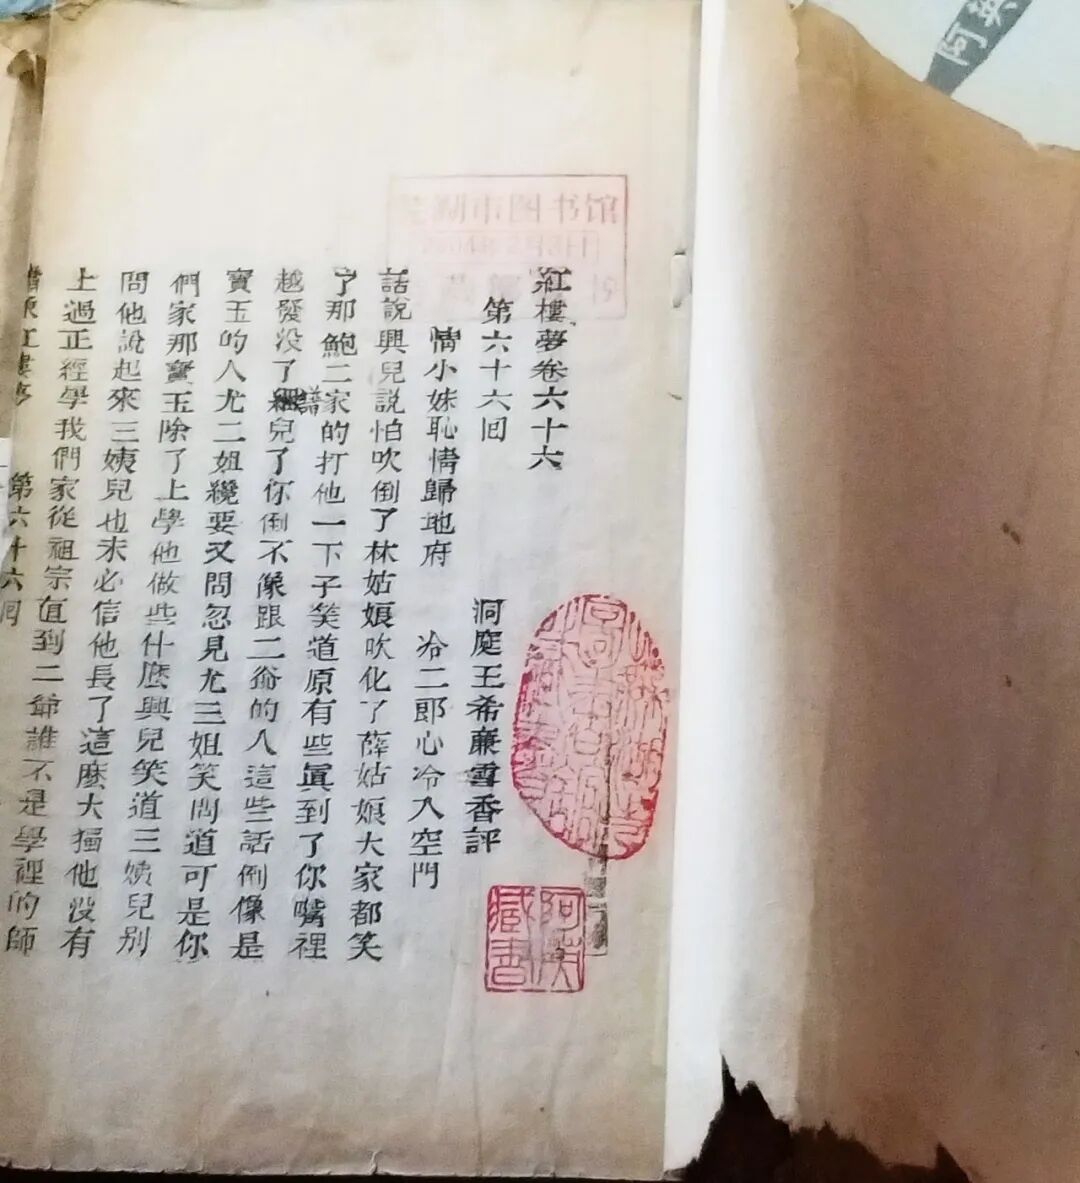 紅樓夢卷六十六
第六十六回
洞庭王希廉雪香評
情小妹恥情歸地府 冷二郎心冷入空門
話說興兒說怕吹倒了林姑娘吹化了薛姑娘大家都笑
了那鮑二家的打他一下子笑道原有些眞到了你嘴裡
越發没了譜兒了你倒不像跟二爺的人這些話倒像是
寶玉的人尤二姐纔要又問忽見尤三姐笑問道可是你
們家那寶玉除了上學他做些什麽興兒笑道三姨兒别
問他說起來三姨兒也未必信他長了這麽大獨他没有
上過正經學我們家從祖宗直到二爺誰不是學裡的師
紅樓夢 第六十六回
芜湖市图书馆
阿英藏書
阿英